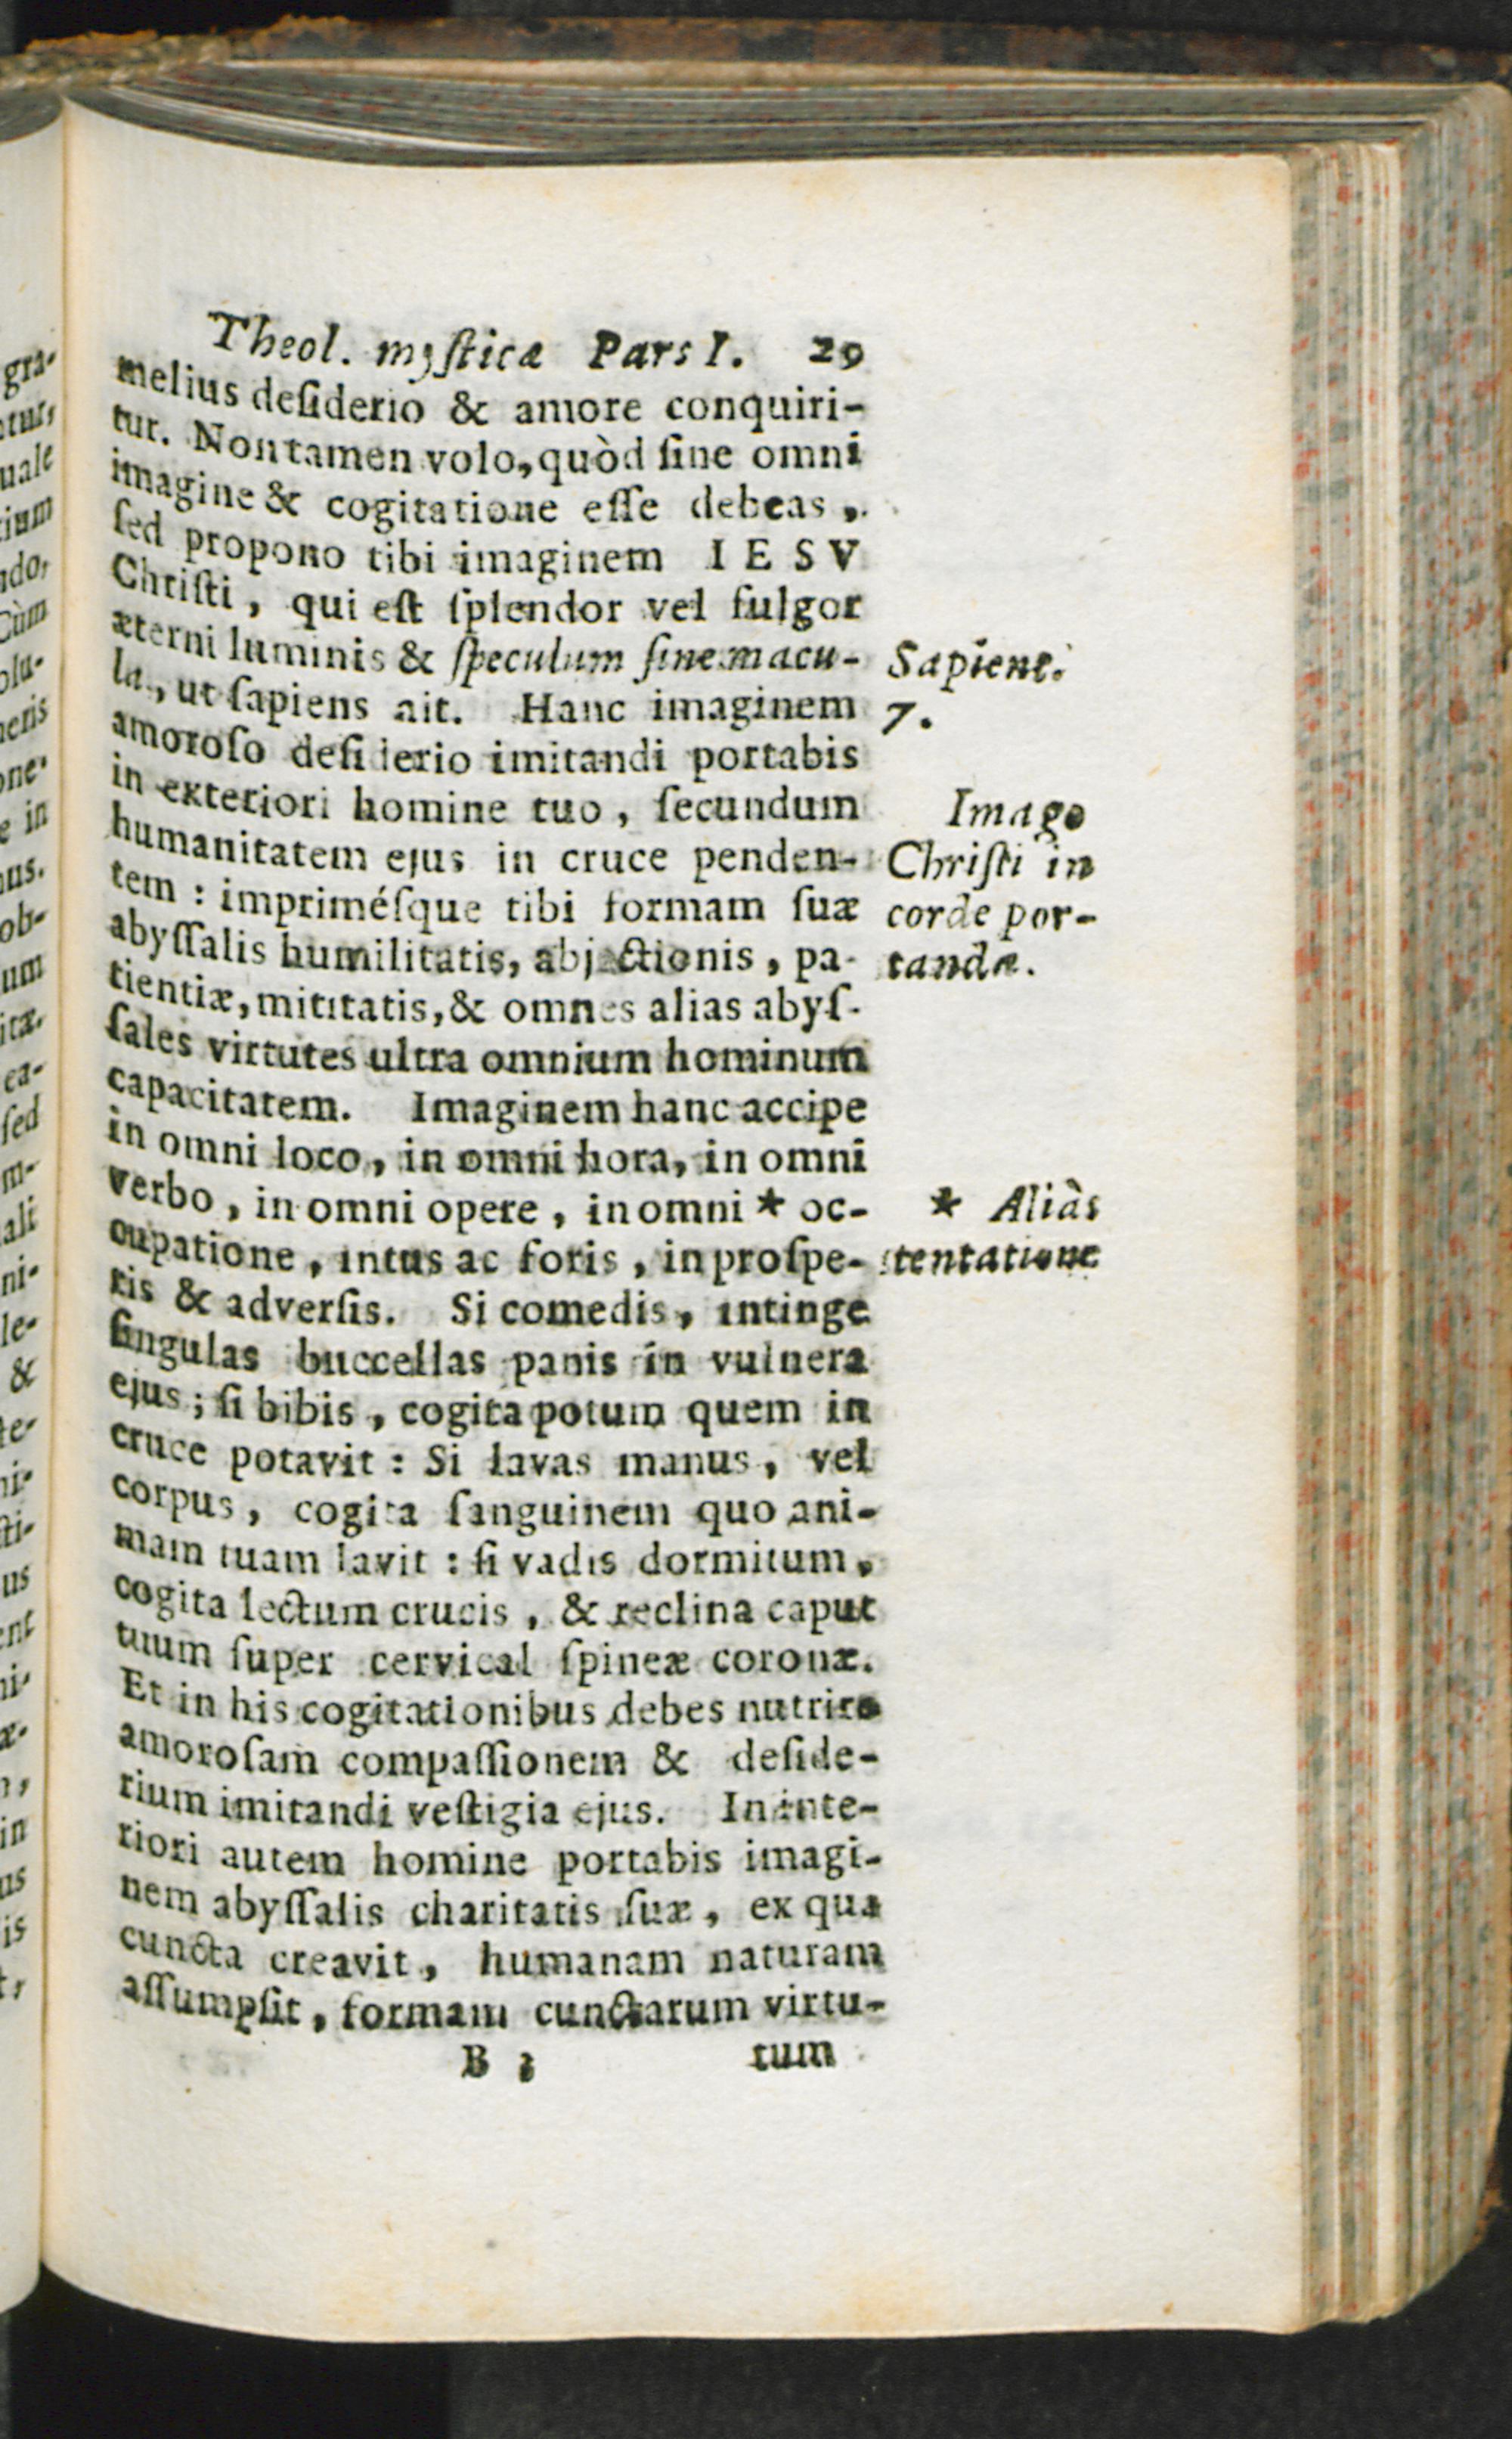 Theol. mystica Pars I. 29
melius desiderio & amore conquiri-
tur. Non tamen volo, quòd sine omni
imagine & cogitatione esse debeas,
sed propono tibi imaginem IESV
Christi, qui est splendor vel fulgor
æterni luminis & speculum sine macu-
la, ut sapiens ait. Hanc imaginem
amoroso desiderio imitandi portabis
in exteriori homine tuo, secundum
humanitatem ejus in cruce penden-
tem : imprimésque tibi formam suæ
abyssalis humilitatis, abjectionis, pa-
tientiæ, mititatis, & omnes alias abys-
sales virtutes ultra omnium hominum
capacitatem. Imaginem hanc accipe
in omni loco, in omni hora, in omni
verbo, in omni opere, in omni * oc-
cupatione, intus ac foris, in prospe-
ris & adversis. Si comedis, intinge
singulas buccellas panis in vulnera
ejus; si bibis, cogita potum quem in
cruce potavit : Si lavas manus, vel
corpus, cogita sanguinem quo ani-
mam tuam lavit : si vadis dormitum,
cogita lectum crucis, & reclina caput
tuum super cervical spineæ coronæ.
Et in his cogitationibus debes nutrire
amorosam compassionem & deside-
rium imitandi vestigia ejus. In inte-
riori autem homine portabis imagi-
nem abyssalis charitatis suæ, ex qua
cuncta creavit, humanam naturam
assumpsit, formam cunctarum virtu-
B
tum
Sapient.
7.
Imago
Christi in
corde por-
tanda.
* Aliàs
tentatione
gra-
uale
ob-
um
sed
ali
ni-
le-
&
us
in
us
is